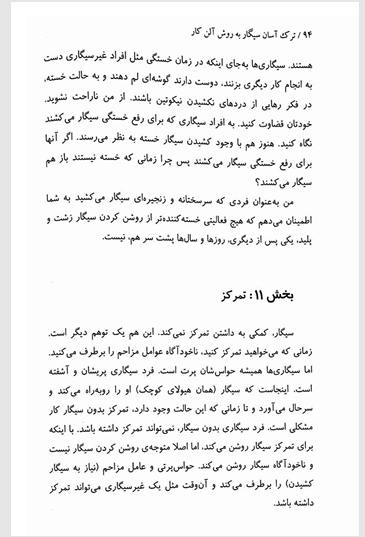 ۹۴ / ترک آسان سیگار به روش آلن کار
هستند. سیگاری‌ها به‌جای اینکه در زمان خستگی مثل افراد غیرسیگاری دست
به انجام کار دیگری بزنند، دوست دارند گوشه‌ای لم دهند و به حالت خسته،
در فکر رهایی از دردهای نکشیدن نیکوتین باشند. از من ناراحت نشوید.
خودتان قضاوت کنید. به افراد سیگاری که برای رفع خستگی سیگار می‌کشند
نگاه کنید. هنوز هم با وجود کشیدن سیگار خسته به نظر می‌رسند. اگر آنها
برای رفع خستگی سیگار می‌کشند پس چرا زمانی که خسته نیستند باز هم
سیگار می‌کشند؟
من به‌عنوان فردی که سرسختانه و زنجیره‌ای سیگار می‌کشید به شما
اطمینان می‌دهم که هیچ فعالیتی خسته‌کننده‌تر از روشن کردن سیگار زشت و
پلید، یکی پس از دیگری، روزها و سال‌ها پشت سر هم، نیست.
بخش ۱۱: تمرکز
سیگار، کمکی به داشتن تمرکز نمی‌کند. این هم یک توهم دیگر است.
زمانی که می‌خواهید تمرکز کنید، ناخودآگاه عوامل مزاحم را برطرف می‌کنید.
اما سیگاری‌ها همیشه حواس‌شان پرت است. فرد سیگاری پریشان و آشفته
است. اینجاست که سیگار (همان هیولای کوچک) او را روبه‌راه می‌کند و
سرحال می‌آورد و تا زمانی که این حالت وجود دارد، تمرکز بدون سیگار کار
مشکلی است. فرد سیگاری بدون سیگار، نمی‌تواند تمرکز داشته باشد. با اینکه
برای تمرکز سیگار روشن می‌کند، اما اصلا متوجه‌ی روشن کردن سیگار نیست
و ناخودآگاه سیگار روشن می‌کند. حواس‌پرتی و عامل مزاحم (نیاز به سیگار
کشیدن) را برطرف می‌کند و آن‌وقت مثل یک غیرسیگاری می‌تواند تمرکز
داشته باشد.